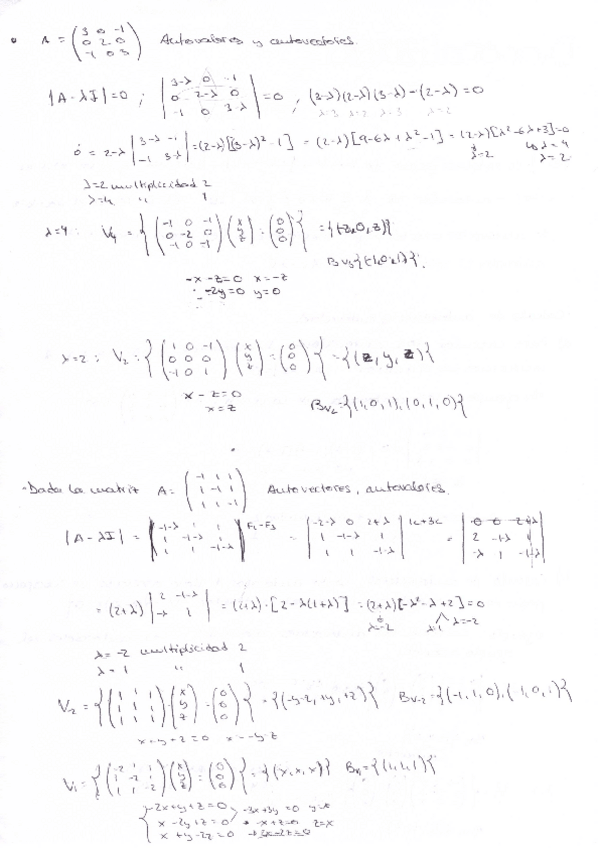 A = (3 0 -1 / 0 2 0 / -1 0 3) Autovalores y autovectores.
|A - λI| = 0 ; |3-λ 0 -1 / 0 2-λ 0 / -1 0 3-λ| = 0 , (3-λ)(2-λ)(3-λ) - (2-λ) = 0
ó = 2-λ |3-λ -1 / -1 3-λ| = (2-λ)[(3-λ)² - 1] = (2-λ)[9-6λ+λ²-1] = (2-λ)[λ²-6λ+3] = 0
λ=2 λ=4
λ=2
λ=2 multiplicidad 2
λ=4 " 1
λ=4: V₄ = {(-1 0 -1 / 0 -2 0 / -1 0 -1)(x / y / z) = (0 / 0 / 0)} = {(-z, 0, z)}
-x -z=0 x=-z
-2y=0 y=0
λ=2: V₂ = {(1 0 -1 / 0 0 0 / -1 0 1)(x / y / z) = (0 / 0 / 0)} = {(z, y, z)}
x - z = 0
x = z
Bv₂ = {(1, 0, 1), (0, 1, 0)}
- Dada la matriz A = (-1 1 1 / 1 -1 1 / 1 1 -1) Autovectores, autovalores.
|A - λI| = |-1-λ 1 1 / 1 -1-λ 1 / 1 1 -1-λ| F₁-F₃ = |-2-λ 0 2+λ / 1 -1-λ 1 / 1 1 -1-λ| 1C+3C = |0 0 2+λ / 2 -1-λ 1 / -λ 1 -1-λ|
= (2+λ) |2 -1-λ / -λ 1| = (2+λ)·[2-λ(1+λ)] = (2+λ)[-λ²-λ+2] = 0
λ=-2 λ=1 λ=-2
λ = -2 multiplicidad 2
λ = 1 " 1
V₂ = {(1 1 1 / 1 1 1 / 1 1 1)(x / y / z) = (0 / 0 / 0)} = {(-y-z, +y, +z)} Bv-₂ = {(-1, 1, 0), (-1, 0, 1)}
x + y + z = 0 x = -y-z
V₁ = {(-2 1 1 / 1 -2 1 / 1 1 -2)(x / y / z) = (0 / 0 / 0)} = {(x, x, x)} B = {(1, 1, 1)}
-2x+y+z=0 -3x+3y=0
x -2y+z=0 z=x
x +y-2z=0